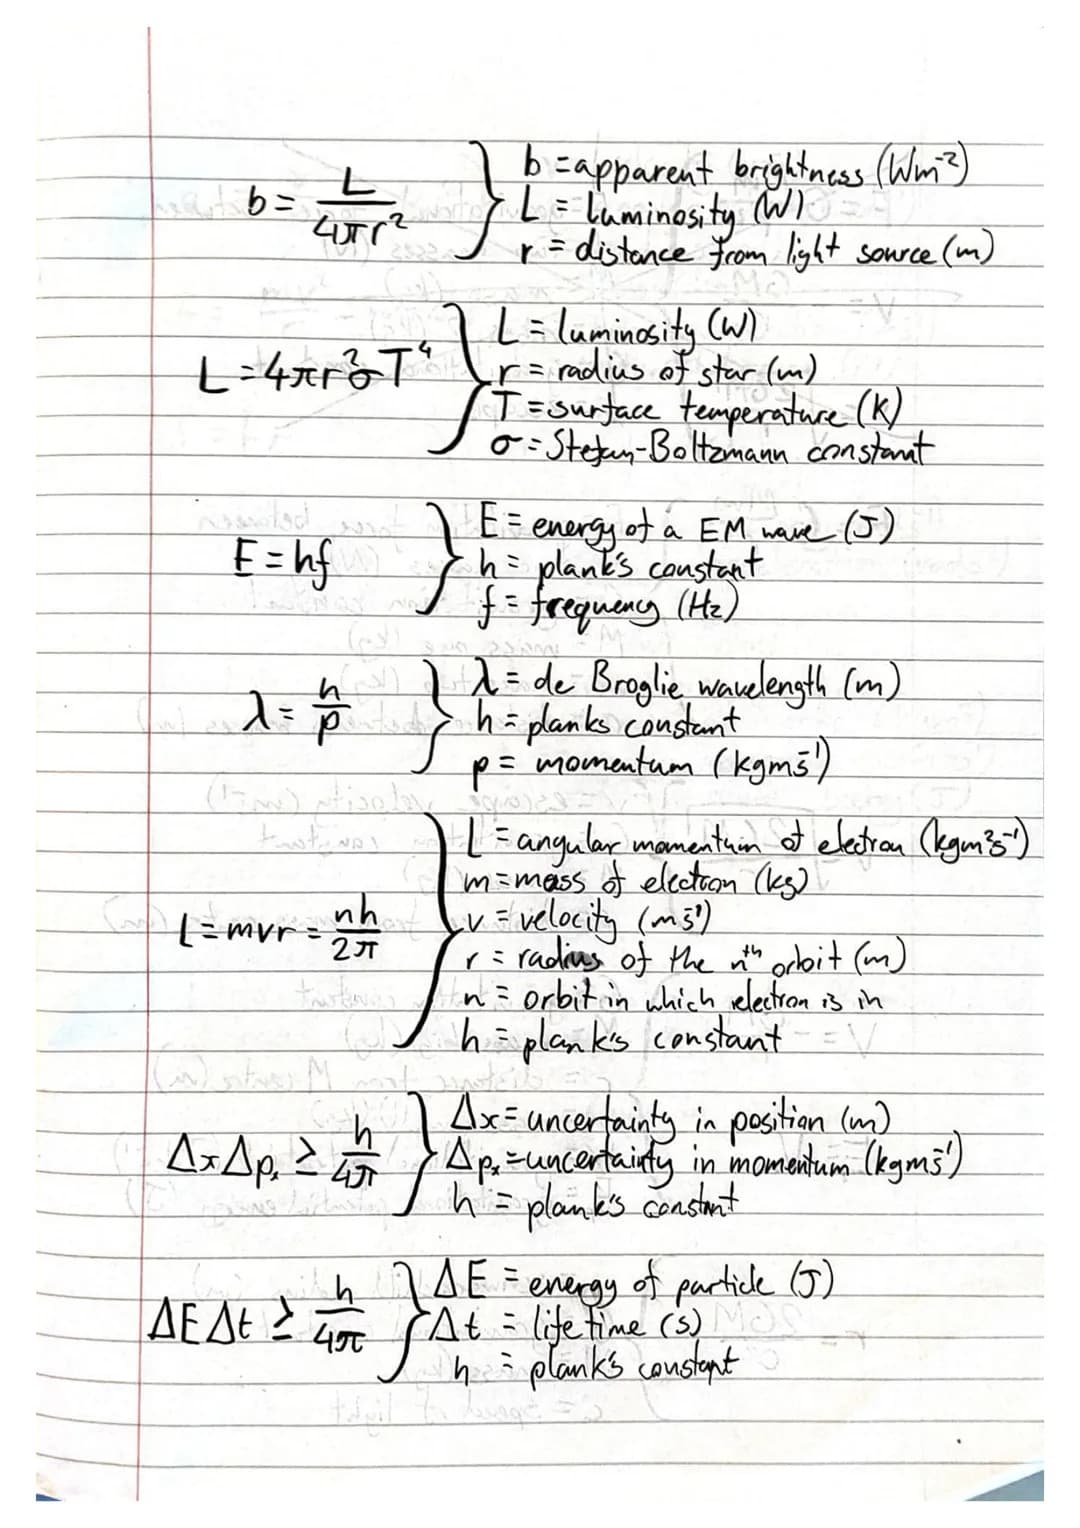 b = L/4πr² } b = apparent brightness (Wm⁻²)
L = luminosity (W)
r = distance from light source (m)
L = 4πr²σT⁴ } L = luminosity (W)
r = radius of star (m)
T = surface temperature (K)
σ = Stefan-Boltzmann constant
E = hf } E = energy of a EM wave (J)
h = plank's constant
f = frequency (Hz)
λ = h/p } λ = de Broglie wavelength (m)
h = planks constant
p = momentum (kgms⁻¹)
L = mvr = nh/2π } L = angular momentum of electron (kgm²s⁻¹)
m = mass of electron (kg)
v = velocity (ms⁻¹)
r = radius of the nᵗʰ orbit (m)
n = orbit in which electron is in
h = plank's constant
ΔxΔpₓ ≥ h/4π } Δx = uncertainty in position (m)
Δpₓ = uncertainty in momentum (kgms⁻¹)
h = plank's constant
ΔEΔt ≥ h/4π } ΔE = energy of particle (J)
Δt = life time (s)
h = plank's constant